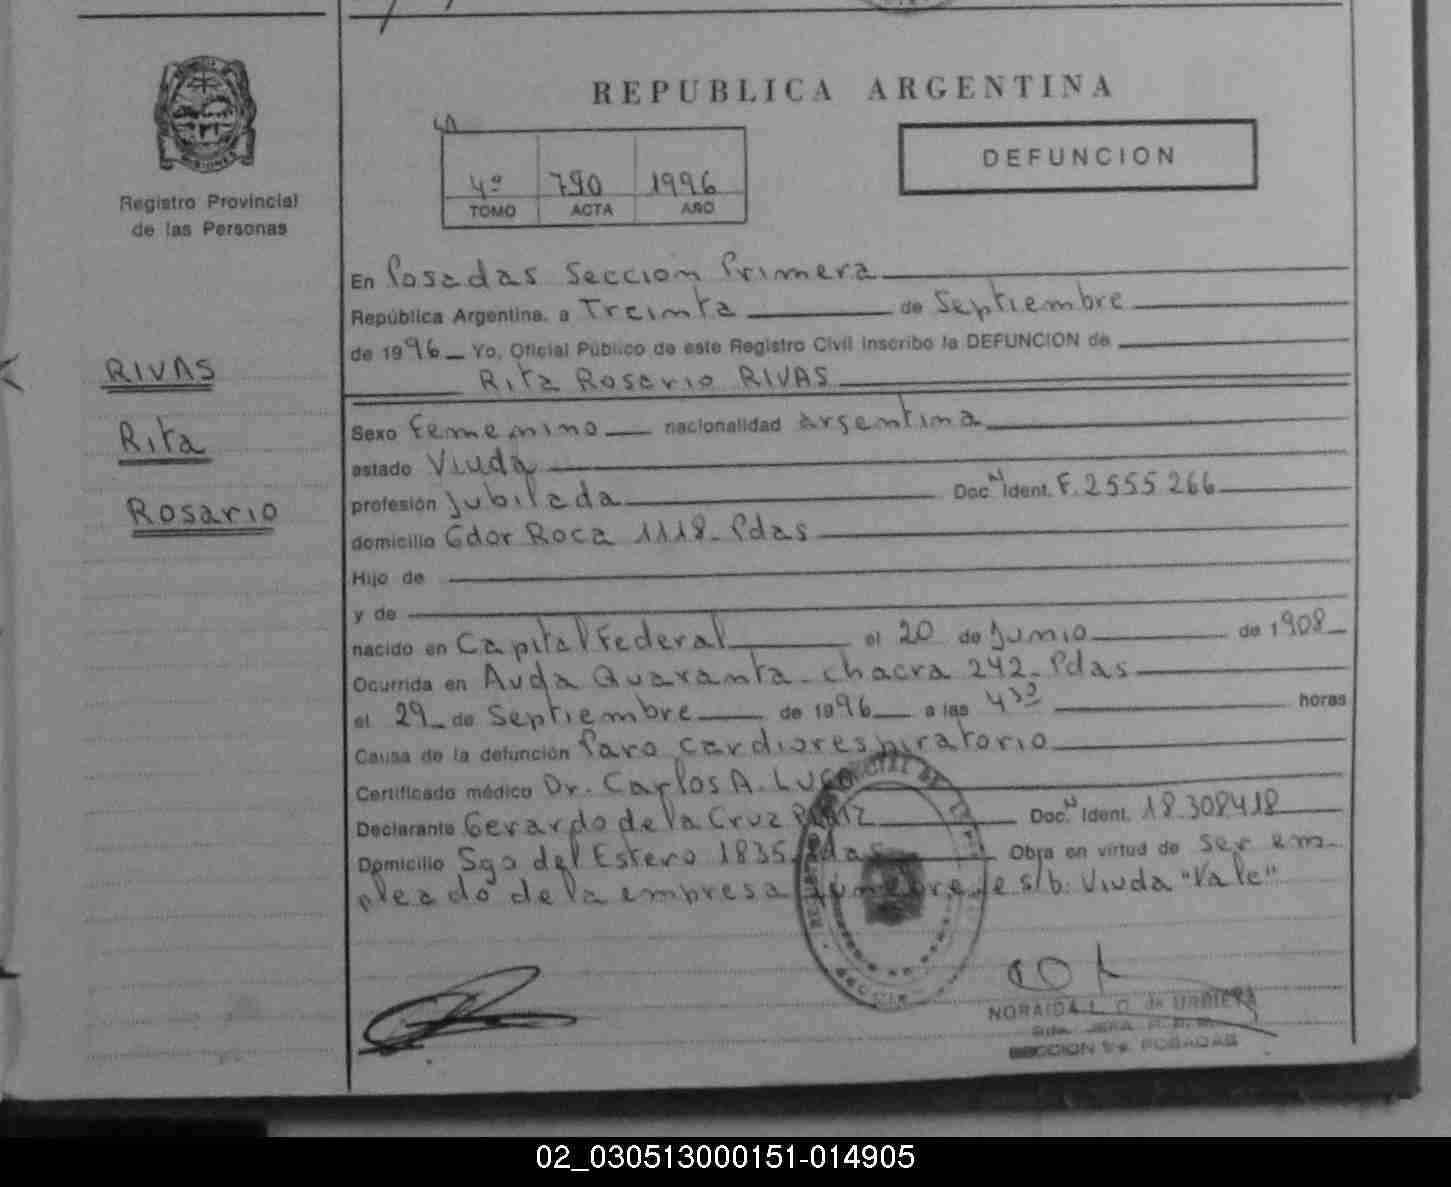 REPUBLICA ARGENTINA
DEFUNCION
4º 790 1996
TOMO ACTA AÑO
Registro Provincial
de las Personas
RIVAS
Rita
Rosario
En Posadas Sección Primera
República Argentina, a Treinta de Septiembre
de 1996 Yo, Oficial Público de este Registro Civil inscribo la DEFUNCION de
Rita Rosario RIVAS
Sexo Femenino nacionalidad argentina
estado Viuda
profesión Jubilada Doc. N Ident. F. 2555266
domicilio Gdor Roca 1118 - Pdas
Hijo de
y de
nacido en Capital Federal el 20 de Junio de 1908
Ocurrida en Avda Quaranta - chacra 242 - Pdas
el 29 de Septiembre de 1996 a las 4 30 horas
Causa de la defunción Paro cardiorespiratorio
Certificado médico Dr. Carlos A. Lugo
Declarante Gerardo de la Cruz Doc. N Ident. 18.308418
Domicilio Sgo del Estero 1835 Pdas Obra en virtud de ser em-
pleado de la empresa fúnebre e s/b. Viuda "Vale"
NORAIDA L. O. de URBIETA
SECCION 1ra POSADAS
02_030513000151-014905